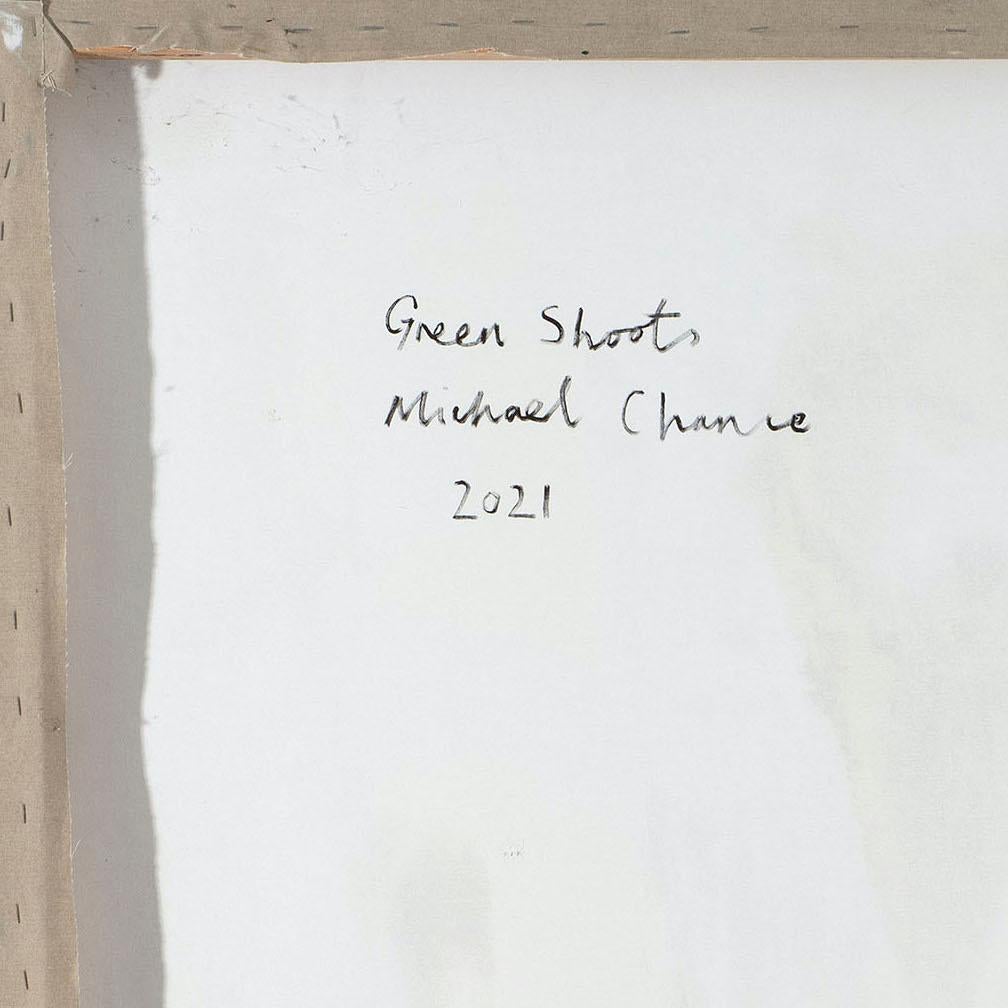 Green Shoots
Michael Chance
2021